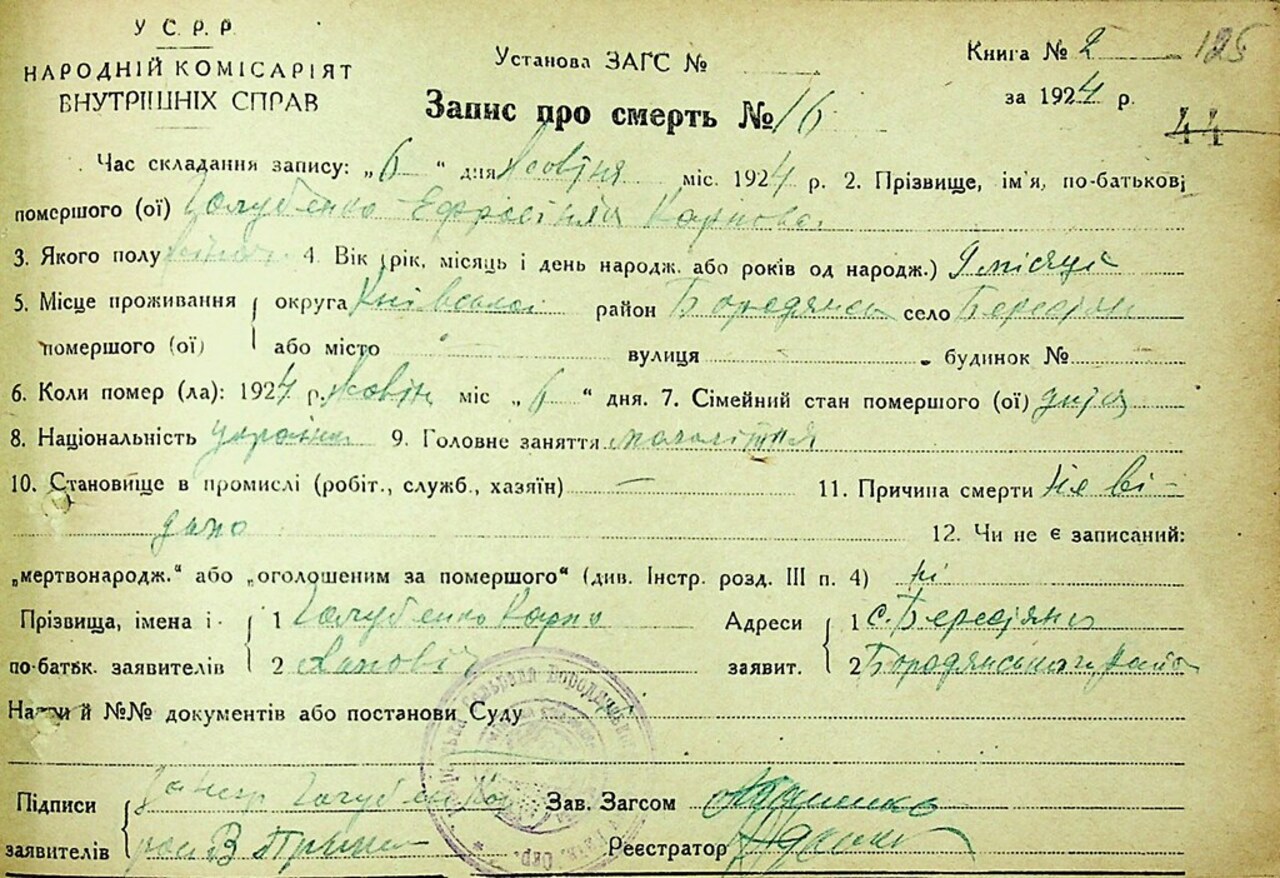 У С. Р. Р.
НАРОДНІЙ КОМІСАРІЯТ
ВНУТРІШНІХ СПРАВ
Установа ЗАГС №
Книга № 2 125
за 1924 р.
Запис про смерть № 16
44
Час складання запису: „6“ дня Жовтня міс. 1924 р. 2. Прізвище, ім'я, по-батькові
помершого (ої) Голубенко Ефросінія Карпова
3. Якого полу 4. Вік (рік, місяць і день народж. або років од народж.) 9 місяців
5. Місце проживання округа Київської район Бородянськ село Берестян
помершого (ої) або місто вулиця будинок №
6. Коли помер (ла): 1924 р. Жовтн міс „6“ дня. 7. Сімейний стан помершого (ої) дитя
8. Національність україн 9. Головне заняття малолітня
10. Становище в промислі (робіт., служб., хазяїн) — 11. Причина смерти не ві-
домо
12. Чи не є записаний:
„мертвонародж.“ або „оголошеним за помершого“ (див. Інстр. розд. III п. 4) ні
Прізвища, імена і 1 Голубенко Карпо Адреси 1 с. Берестян
по-батьк. заявителів 2 заявит. 2 Бородянського райо
Назви й №№ документів або постанови Суду
Підписи Голубенко Зав. Загсом
заявителів Реєстратор